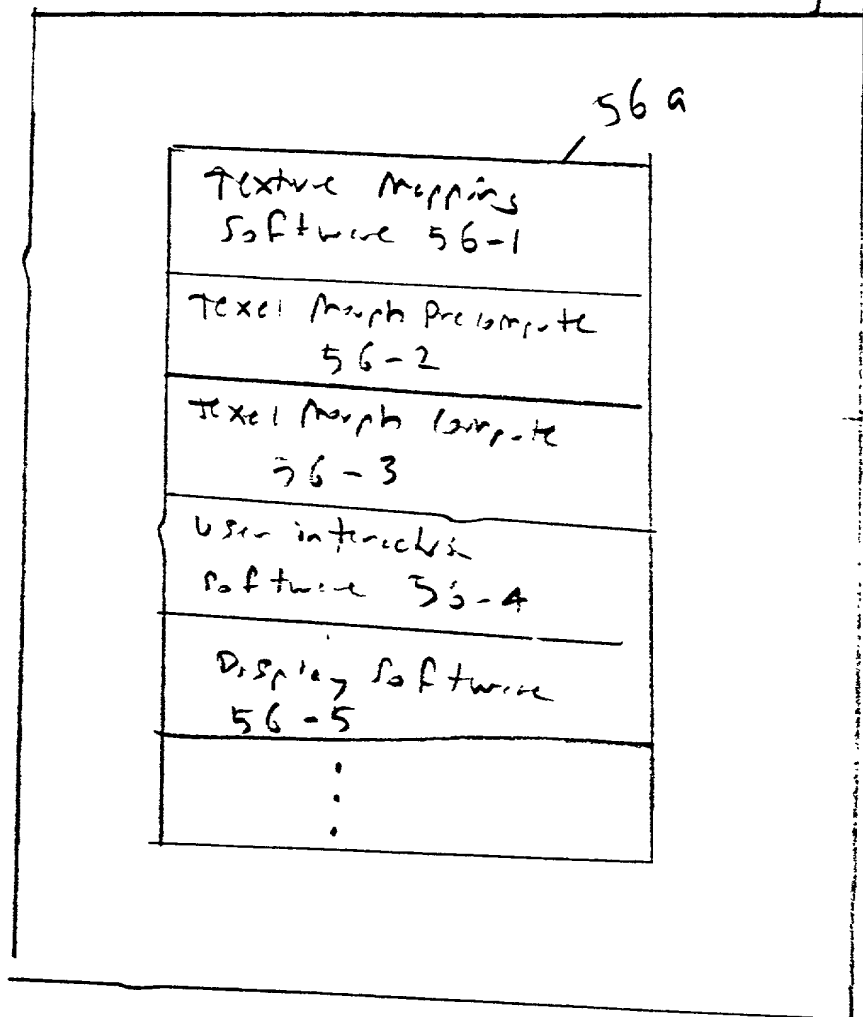 56a
Texture Mapping
Software 56-1
Texel Morph Precompute
56-2
Texel Morph Compute
56-3
User interaction
Software 56-4
Display Software
56-5